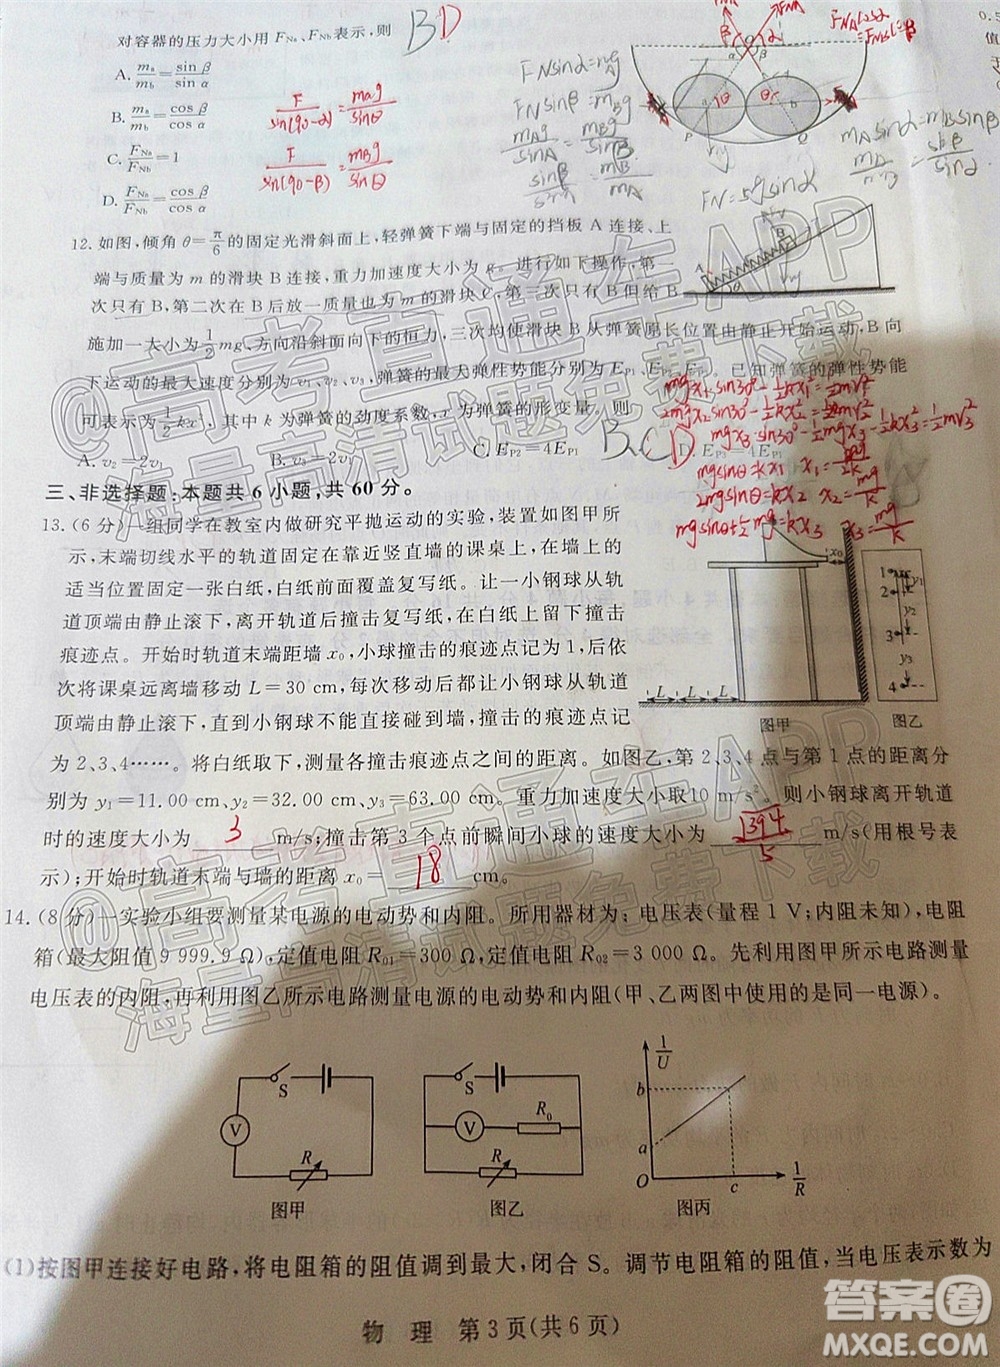 对容器的压力大小用 F_Na、F_Nb 表示,则 BD
A. m_a/m_b = sinβ/sinα
B. m_a/m_b = cosβ/cosα
C. F_Na/F_Nb = 1
D. F_Na/F_Nb = cosβ/cosα
F/sin(90-α) = m_Ag/sinθ
F/sin(90-β) = m_Bg/sinθ
F_NAcosα
F_Nsinβ = m_Bg
12. 如图,倾角 θ=π/6 的固定光滑斜面上,轻弹簧下端与固定的挡板 A 连接、上
端与质量为 m 的滑块 B 连接,重力加速度大小为 g。进行如下操作,第一
次只有 B,第二次在 B 后放一质量也为 m 的滑块 C,第三次只有 B 但给 B
施加一大小为 1/2 mg、方向沿斜面向下的恒力,三次均使滑块 B 从弹簧原长位置由静止开始运动,B 向
下运动的最大速度分别为 v₁、v₂、v₃,弹簧的最大弹性势能分别为 E_P1、E_P2、E_P3。已知弹簧的弹性势能
可表示为 1/2 kx²,其中 k 为弹簧的劲度系数,x 为弹簧的形变量。则
A. v₂=2v₁ B. v₃=2v₁ C. E_P2=4E_P1 D. E_P3=4E_P1
BCD
三、非选择题:本题共 6 小题,共 60 分。
13. (6 分)一组同学在教室内做研究平抛运动的实验,装置如图甲所
示,末端切线水平的轨道固定在靠近竖直墙的课桌上,在墙上的
适当位置固定一张白纸,白纸前面覆盖复写纸。让一小钢球从轨
道顶端由静止滚下,离开轨道后撞击复写纸,在白纸上留下撞击
痕迹点。开始时轨道末端距墙 x₀,小球撞击的痕迹点记为 1,依
次将课桌远离墙移动 L=30 cm,每次移动后都让小钢球从轨道
顶端由静止滚下,直到小钢球不能直接碰到墙,撞击的痕迹点记
为 2、3、4……。将白纸取下,测量各撞击痕迹点之间的距离。如图乙,第 2、3、4 点与第 1 点的距离分
别为 y₁=11.00 cm,y₂=32.00 cm,y₃=63.00 cm。重力加速度大小取10 m/s²。则小钢球离开轨道
时的速度大小为 3 m/s;撞击第 3 个点前瞬间小球的速度大小为 √394/5 m/s(用根号表
示);开始时轨道末端与墙的距离 x₀= 18 cm。
x₀
L L L
图甲
1
2
3
4
y₁
y₂
y₃
图乙
14. (8 分)一实验小组要测量某电源的电动势和内阻。所用器材为:电压表(量程 1 V;内阻未知),电阻
箱(最大阻值 9 999.9 Ω),定值电阻 R₀₁=300 Ω,定值电阻 R₀₂=3 000 Ω。先利用图甲所示电路测量
电压表的内阻,再利用图乙所示电路测量电源的电动势和内阻(甲、乙两图中使用的是同一电源)。
S
V
R
图甲
S
V
R₀
R
图乙
1/U
b
a
O
c
1/R
图丙
(1)按图甲连接好电路,将电阻箱的阻值调到最大,闭合 S。调节电阻箱的阻值,当电压表示数为
物 理 第 3 页(共 6 页)
@高考直通车APP
海量高清试题免费下载
@高考直通车APP
海量高清试题免费下载
答案圈
MXQE.COM